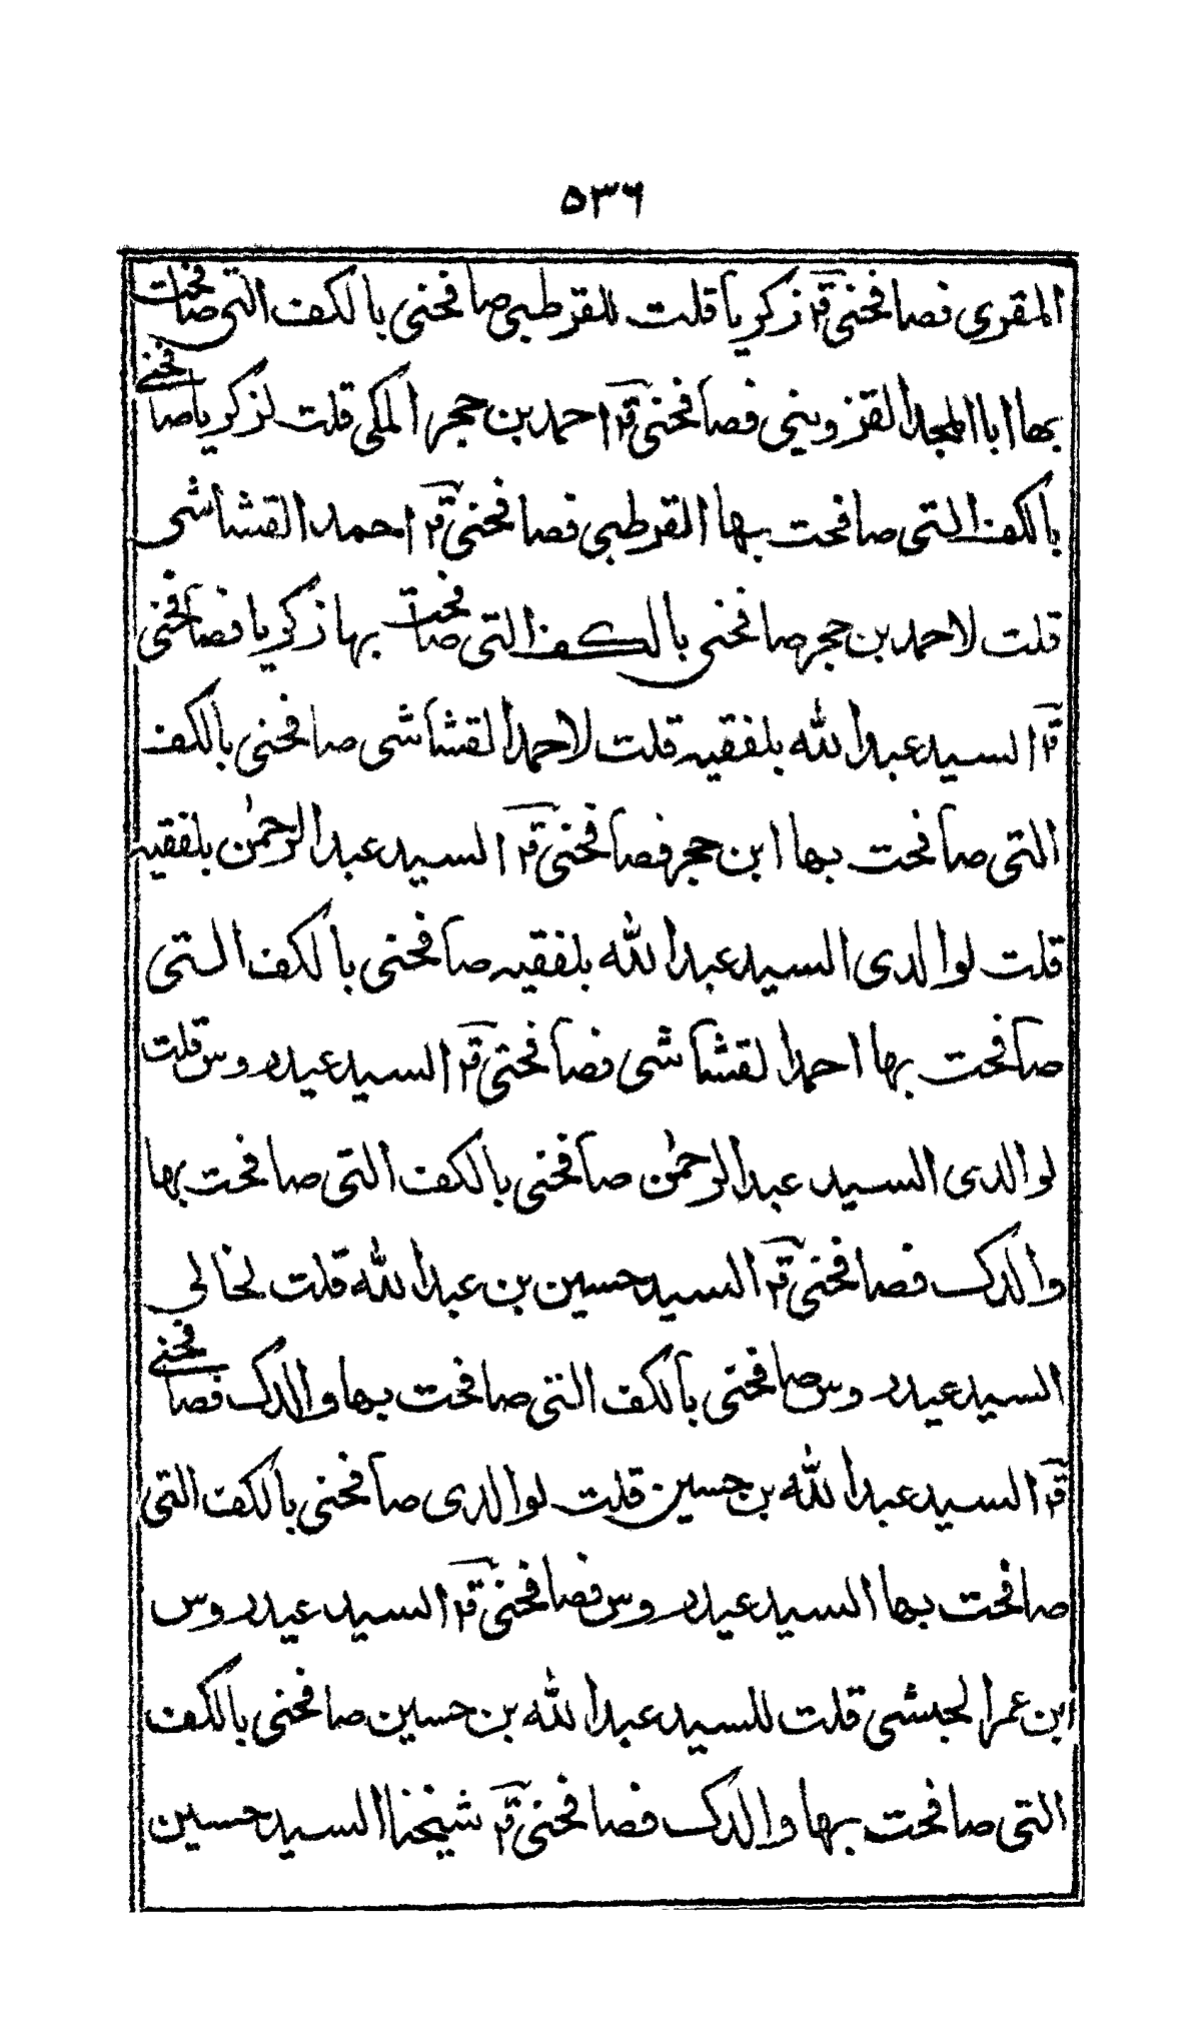 ٥٣٦
المقرى فصافحنى قٓ زكريا قلت للقرطبى صافحنى بالكف التى صافحت
بها ابا المجد القزوينى فصافحنى قٓ احمد بن حجر المكى قلت لزكريا صافحنى
بالكف التى صافحت بها القرطبى فصافحنى قٓ احمد القشاشى
قلت لاحمد بن حجر صافحنى بالكف التى صافحت بها زكريا فصافحنى
قٓ السيد عبدالله بلفقيه قلت لاحمد القشاشى صافحنى بالكف
التى صافحت بها ابن حجر فصافحنى قٓ السيد عبدالرحمٰن بلفقيه
قلت لوالدى السيد عبدالله بلفقيه صافحنى بالكف التى
صافحت بها احمد القشاشى فصافحنى قٓ السيد عيدروس قلت
لوالدى السيد عبدالرحمٰن صافحنى بالكف التى صافحت بها
والدك فصافحنى قٓ السيد حسين بن عبدالله قلت لخالى
السيد عيدروس صافحنى بالكف التى صافحت بها والدك فصافحنى
قٓ السيد عبدالله بن حسين قلت لوالدى صافحنى بالكف التى
صافحت بها السيد عيدروس فصافحنى قٓ السيد عيدروس
ابن عمر الحبشى قلت للسيد عبدالله بن حسين صافحنى بالكف
التى صافحت بها والدك فصافحنى قٓ شيخنا السيد حسين